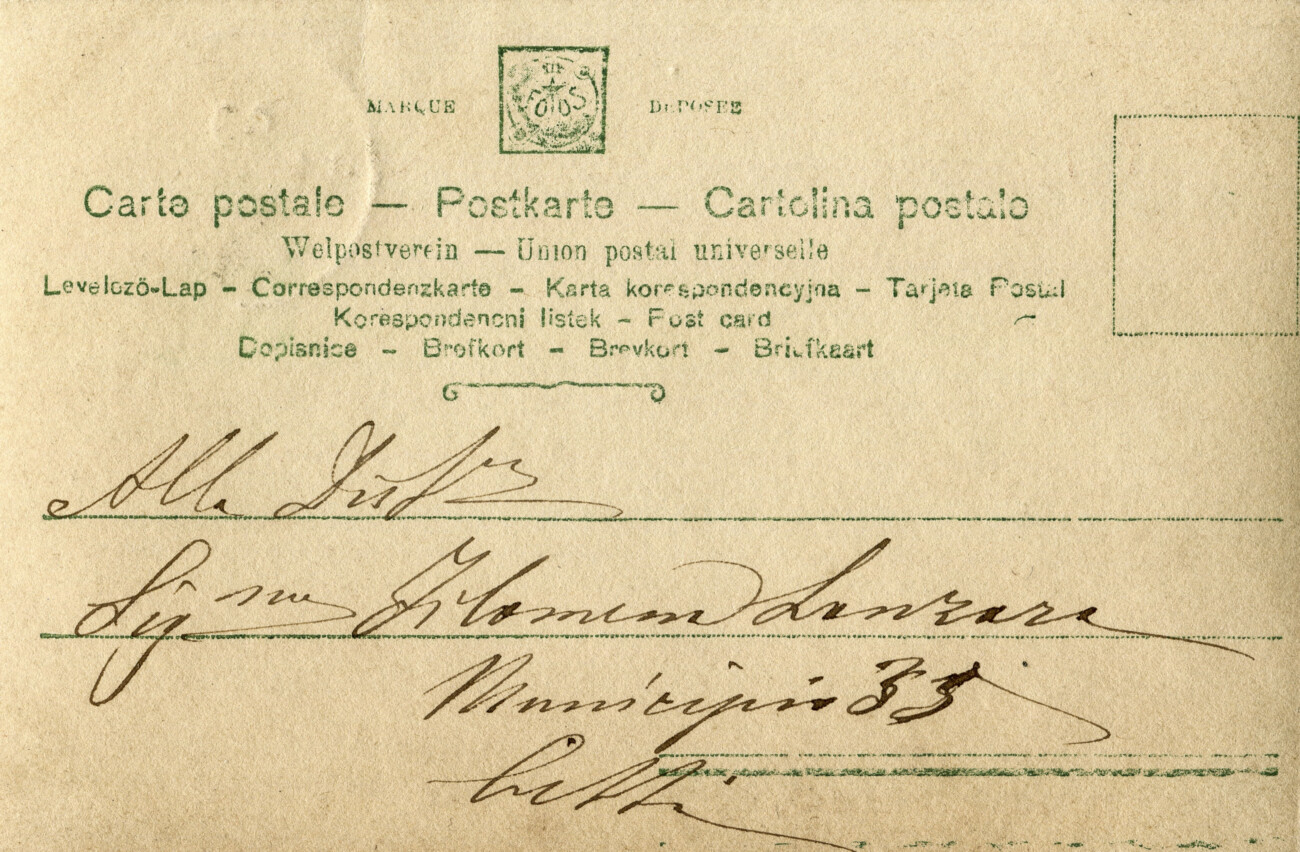 MARQUE DEPOSEE
FOTOS
Carte postale — Postkarte — Cartolina postale
Welpostverein — Union postal universelle
Levelozö-Lap – Correspondenzkarte – Karta korespondencyjna – Tarjeta Postal
Korespondencni listek – Post card
Dopisnice – Brefkort – Brevkort – Briefkaart
Alla
Sig.na Filomena Lanzara
Municipio 33
Città